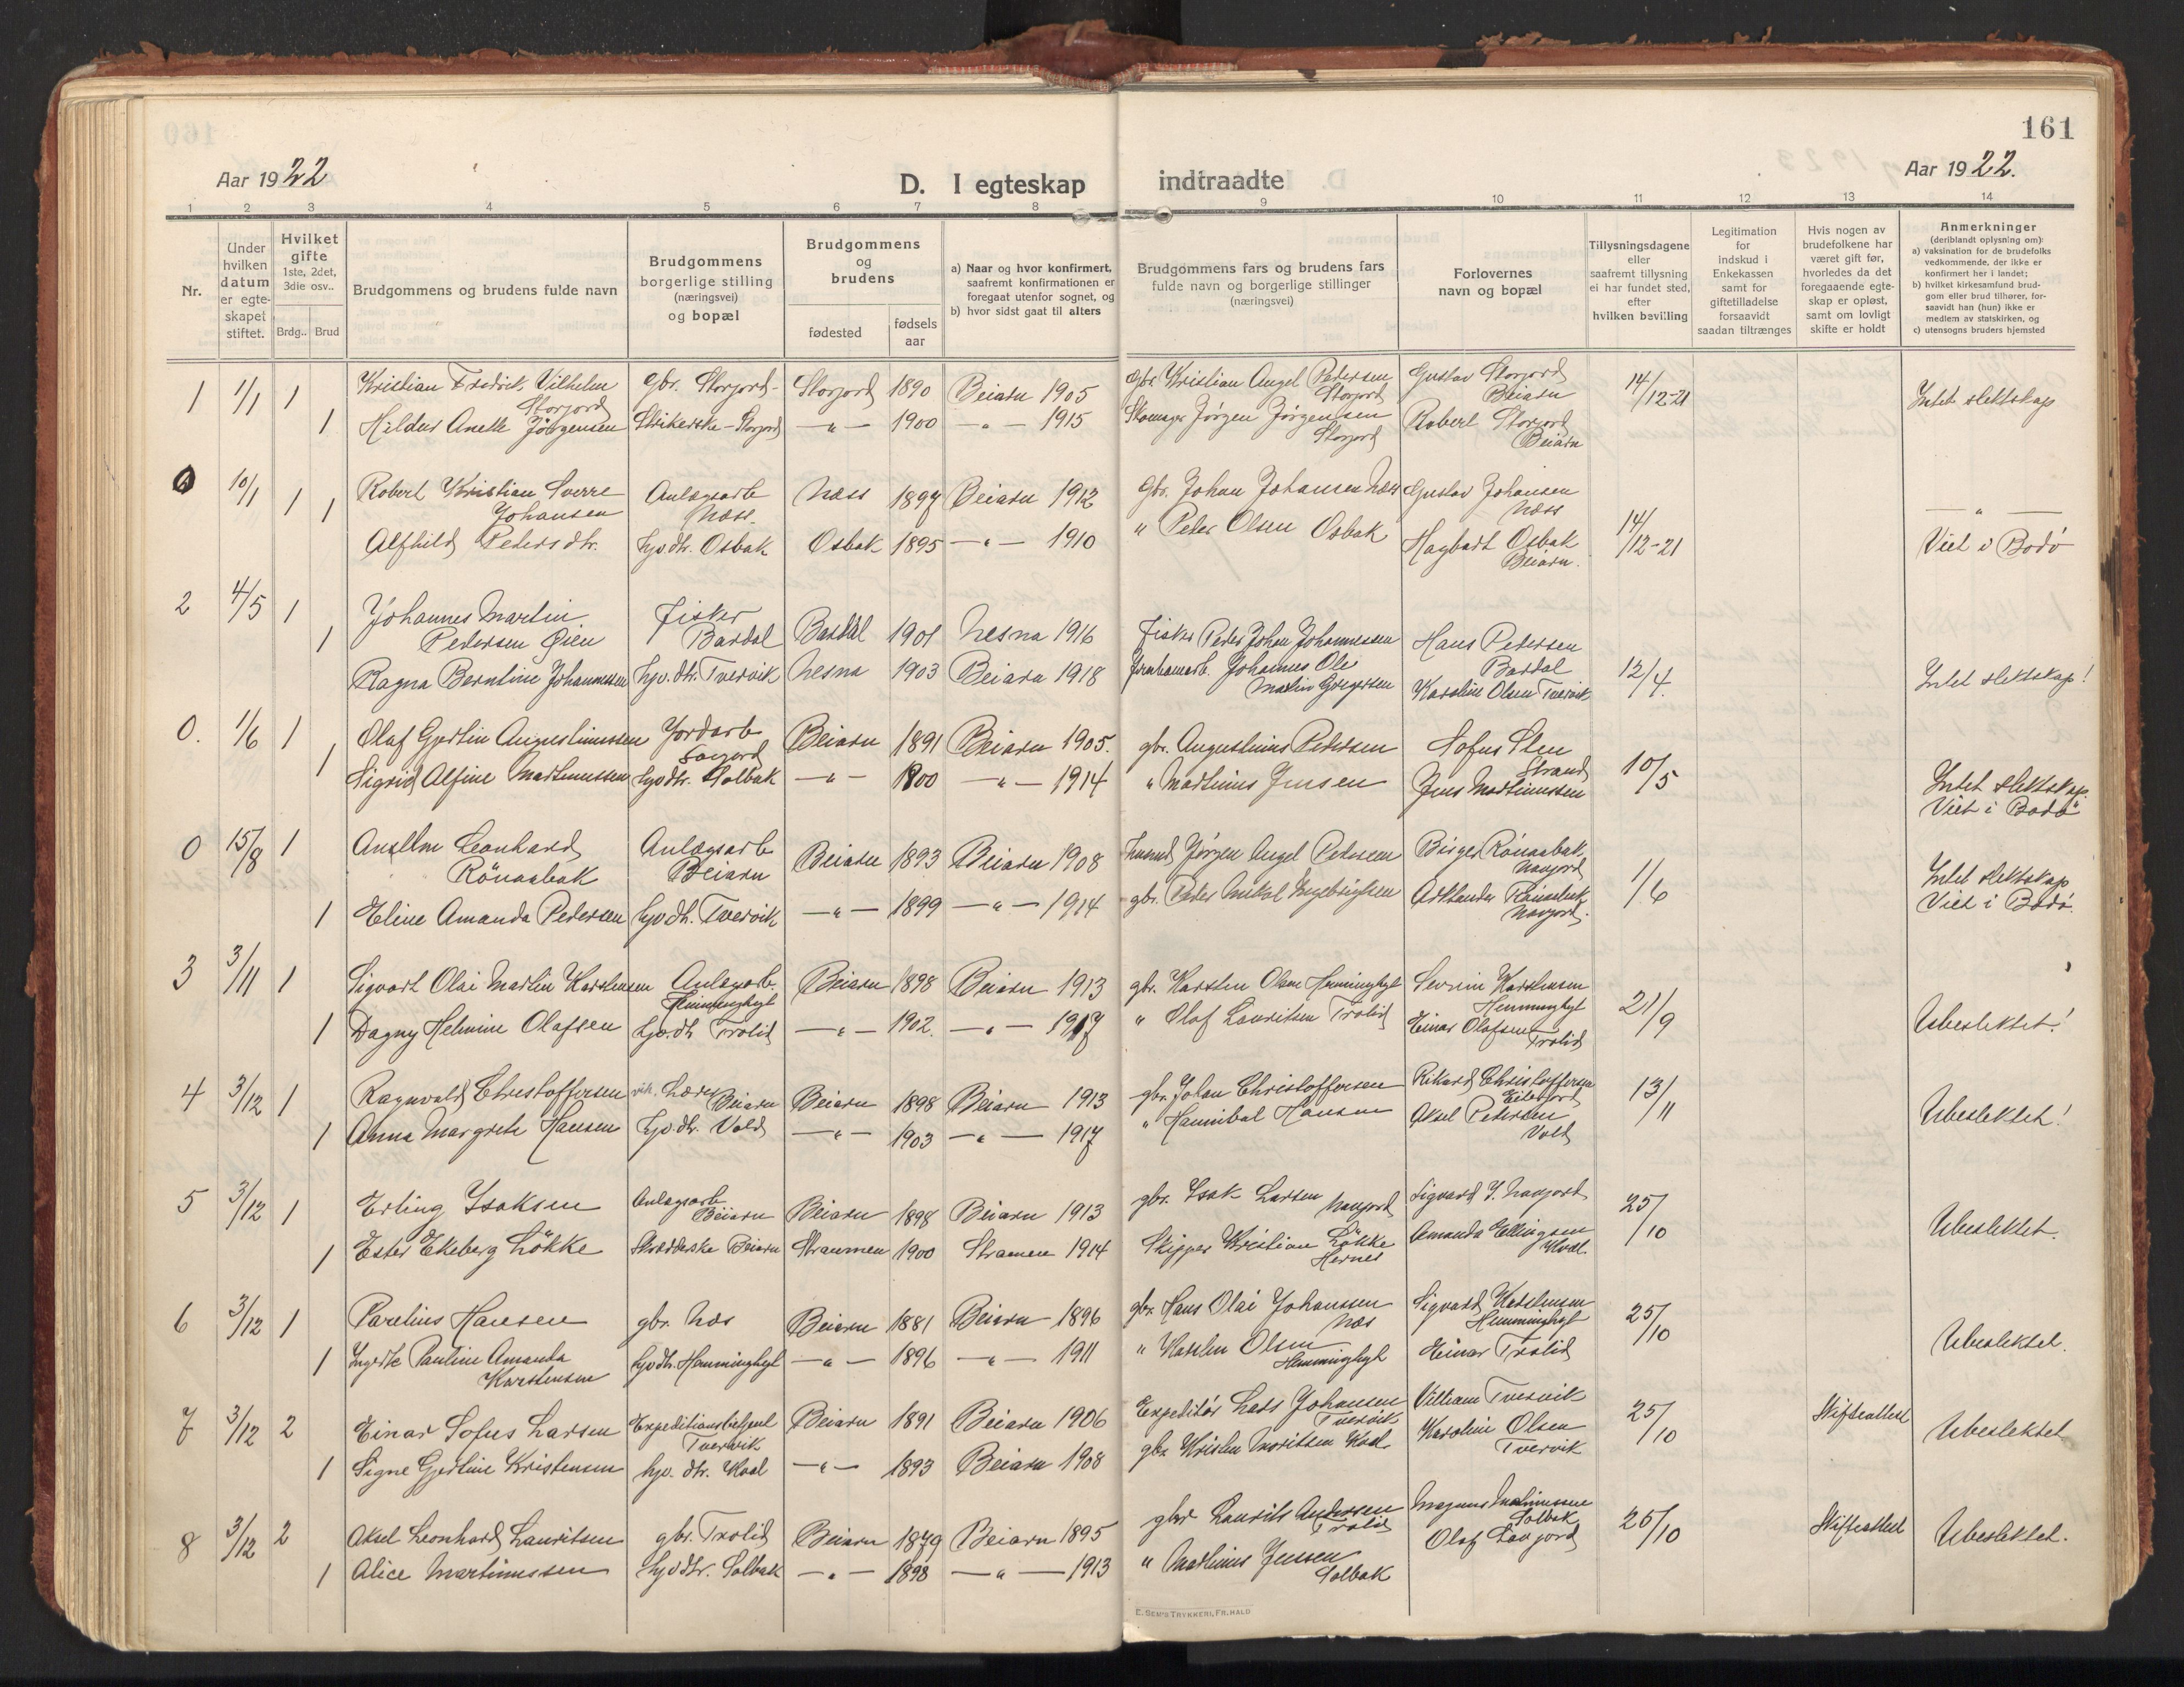 161
Aar 1922
D. I egteskap indtraadte
Aar 1922.
1 2 3 4 5 6 7 8 9 10 11 12 13 14
Nr.
Under hvilken datum er egte-skapet stiftet.
Hvilket gifte
1ste, 2det, 3die osv..
Brdg.. Brud
Brudgommens og brudens fulde navn
Brudgommens borgerlige stilling (næringsvei) og bopæl
Brudgommens og brudens
fødested
fødsels aar
a) Naar og hvor konfirmert, saafremt konfirmationen er foregaat utenfor sognet, og
b) hvor sidst gaat til alters
Brudgommens fars og brudens fars fulde navn og borgerlige stillinger (næringsvei)
Forlovernes navn og bopæl
Tillysningsdagene eller saafremt tillysning ei har fundet sted, efter hvilken bevilling
Legitimation for indskud i Enkekassen samt for giftetilladelse forsaavidt saadan tiltrænges
Hvis nogen av brudefolkene har været gift før, hvorledes da det foregaaende egte-skap er opløst, samt om lovligt skifte er holdt
Anmerkninger
(deriblandt oplysning om):
a) vaksination for de brudefolks vedkommende, der ikke er konfirmert her i landet;
b) hvilket kirkesamfund brud-gom eller brud tilhører, for-saavidt han (hun) ikke er medlem av statskirken, og
c) utensogns bruders hjemsted
1 1/1 1 Kristian Fredrik Vilhelm Storjord gbr. Storjord Storjord 1890 Beiarn 1905 Gbr. Kristian Angel Pedersen Storjord Gustav Storjord Beiarn 14/12-21 Intet slektskap
1 Hildur Anette Jörgensen Strikerske - Storjord -"- 1900 -"- 1915 Skomager Jörgen Jörgensen Storjord Robert Storjord Beiarn
0 10/1 1 1 Robert Kristian Sverre Johansen Anlægsarb Næss. Næss 1897 Beiarn 1912 Gbr. Johan Johansen Næss Gustav Johansen Næss -"-
Alfhild Petersdtr. hjvdtr. Osbak Osbak 1895 -"- 1910 " Peder Olsen Osbak Hagbart Osbak Beiarn. 14/12-21 Viet i Bodö
2 4/5 1 Johannes Martin Pedersen Öien Fisker Bardal Bardal 1901 Nesna 1916 Fisker Peder Johan Johannessen Hans Pedersen Bardal
1 Ragna Berntine Johannessen hjv.dtr. Tvervik Nesna 1903 Beiarn 1918 Johannes Ole Martin Gregersen Karoline Olsen Tvervik 12/4. Intet slektskap!
0. 1/6 1 Olaf Gjertin Augustinussen Jordarb Beiarn 1891 Beiarn 1905. gbr. Augustinus Pedersen Hofus Sten Strand
1 Sigrid Alfine Martinussen hjvdtr. Solbak -"- 1900 -"- 1914 " Martinus Jensen Jens Martinussen 10/5 Intet slektskap. Viet i Bodö
0 15/8 1 Ansellm Leonhard Rönaabak Anlægsarb Beiarn Beiarn 1893 Beiarn 1908 Jörgen Angel Pedersen Birger Rönaabak Navjord
1 Eline Amanda Pedersen hjvdtr. Tvervik -"- 1899 -"- 1914 gbr. Peder Mikal Ingebrigtsen Navjord. 1/6 Intet slektskap Viet i Bodö.
3 3/11 1 Sigvart Olai Martin Karstensen Anlægsarb. Hemminghyt Beiarn 1898 Beiarn 1913 gbr. Karsten Olsen Hemminghyt Severin Karstensen Hemminghyt 21/9 Ubeslektet!
1 Dagny Helmine Olafsen hjv.dtr Trolid -"- 1902. -"- 1917 " Olaf Lauritsen Trolid Einar Olafsen Trolid
4 3/12 1 Ragnvald Christoffersen vik. Lærer Beiarn Beiarn 1898 Beiarn 1913 gbr. Johan Christoffersen Rikard Christoffersen Eiterjord 13/11 Ubeslektet!
1 Anna Margrete Hansen hjv.dtr. Vold -"- 1903 -"- 1917 " Hannibal Hansen Aksel Petersen Vold
5 3/12 1 Erling Isaksen Anlægsarb Beiarn Beiarn 1898 Beiarn 1913 gbr. Isak Larsen Navjord Sigvard J. Navjord 25/10 Ubeslektet.
1 Ester Ekeberg Lökke Skrædderske Beiarn Straumen 1900 Stramen 1914 Skipper Kristian Lökke Hernes Amanda Ellingsen Kval.
6 3/12 1 Parelius Hansen gbr. Næs Beiarn 1881 Beiarn 1896 gbr. Hans Olai Johanssen Næs Sigvard Karstensen Hemminghyt 25/10 Ubeslektet.
1 Pauline Amanda Karstensen hjvdtr. Hemminghyt -"- 1896 -"- 1911 " Karsten Olsen Hemminghyt Einar Trolid
7 3/12 2 Einar Sofus Larsen Expeditionsbetjent Tvervik Beiarn 1891 Beiarn 1906 Expeditör Lars Johansen Tvervik Villiam Tvervik 25/10 Skifteattest Ubeslektet
1 Signe Gjertine Kristensen hjv. dtr. Kval -"- 1893 Beiarn 1908 gbr. Kristen Moritsen Kval Karoline Olsen Tvervik
8 3/12 2 Aksel Leonhard Lauritsen gbr. Trolid Beiarn 1879 Beiarn 1895 gbr Laurits Andersen Trolid Magnus Martinussen Solbak 25/10 Skifteattest Ubeslektet.
1 Alice Martinussen hjvdtr. Solbak -"- 1898 -"- 1913 " Martinus Jenssen Solbak Olaf Savjord
E. SEM'S TRYKKERI, FR.HALD